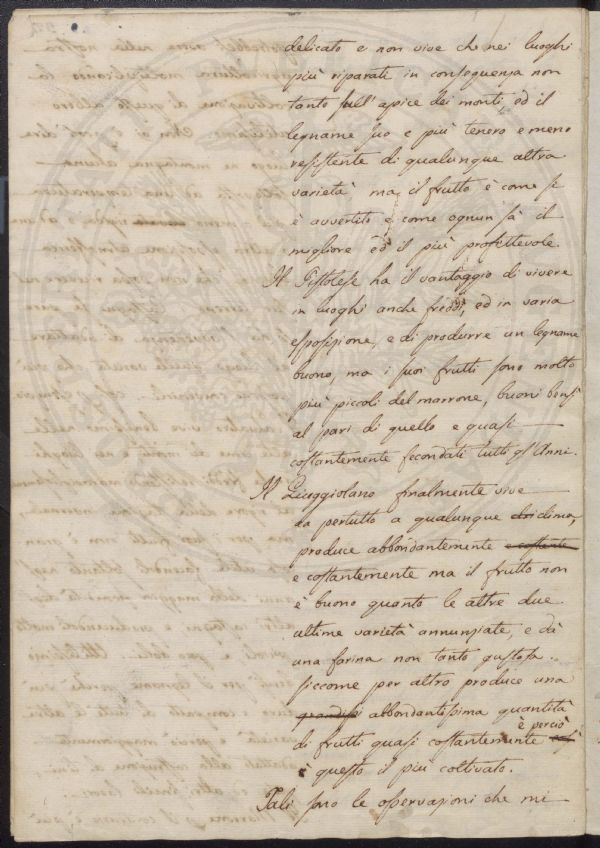 delicato e non vive che nei luoghi
più riparati in conseguenza non
tanto sull'apice dei monti ed il
legname suo e più tenero e meno
resistente di qualunque altra
varietà ma il frutto è come si
è avvertito e come ognun sà il
migliore ed il più profittevole.
Il Pistolese ha il vantaggio di vivere
in luoghi anche freddi, ed in varia
esposizione, e di produrre un legname
buono, ma i suoi frutti sono molto
più piccoli del marrone, buoni bensì
al pari di quello e quasi
costantemente fecondati tutti gl'Anni.
Il finalmente vive
da pertutto a qualunque clima,
produce abbondantemente e costante
e costantemente ma il frutto non
è buono quanto le altre due
ultime varietà annunziate, e dà
una farina non tanto gustosa.
siccome per altro produce una
grandissi abbondantissima quantità
è perciò
di frutti quasi costantemente così
è questo il più coltivato.
Tali sono le osservazioni che mi